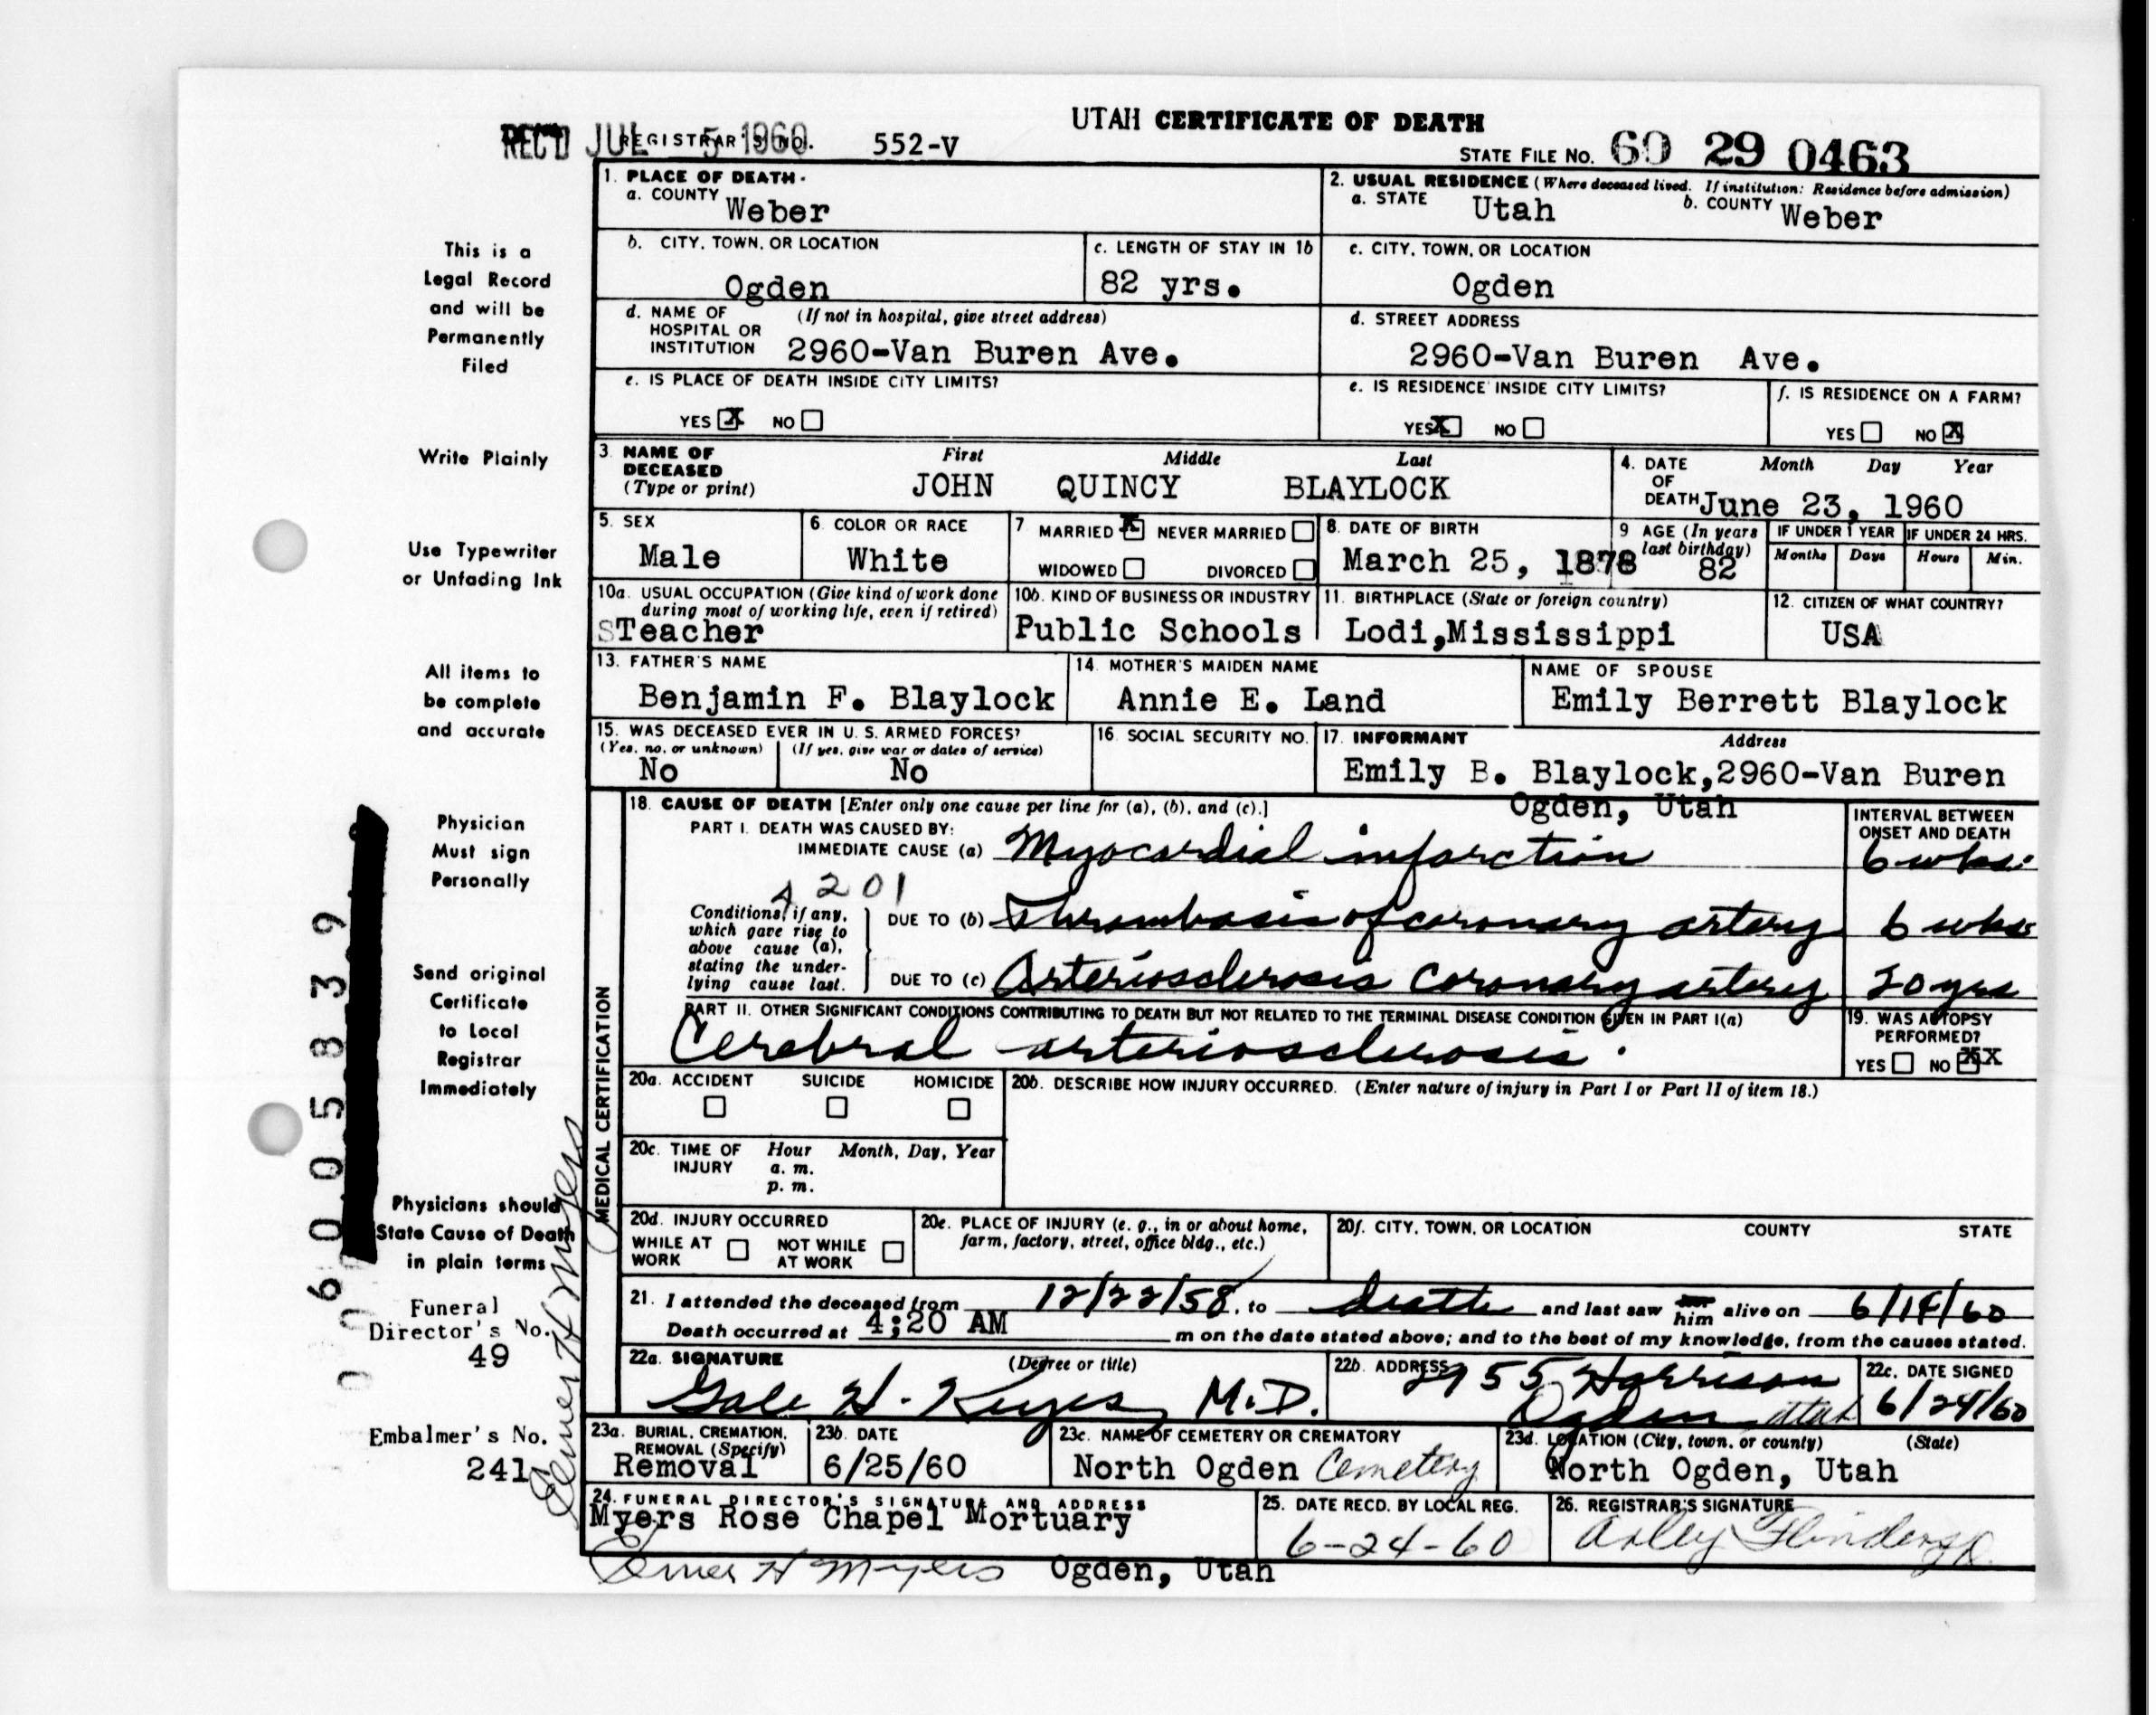 UTAH CERTIFICATE OF DEATH
REC'D JUL 5 1960 REGISTRAR'S NO. 552-V
STATE FILE NO. 60 29 0463
1. PLACE OF DEATH
a. COUNTY Weber
2. USUAL RESIDENCE (Where deceased lived. If institution: Residence before admission)
a. STATE Utah b. COUNTY Weber
b. CITY, TOWN, OR LOCATION
Ogden
c. LENGTH OF STAY IN 1b
82 yrs.
c. CITY, TOWN, OR LOCATION
Ogden
d. NAME OF HOSPITAL OR INSTITUTION (If not in hospital, give street address)
2960-Van Buren Ave.
d. STREET ADDRESS
2960-Van Buren Ave.
e. IS PLACE OF DEATH INSIDE CITY LIMITS?
YES X NO
e. IS RESIDENCE INSIDE CITY LIMITS?
YES X NO
f. IS RESIDENCE ON A FARM?
YES NO X
3. NAME OF DECEASED (Type or print)
First Middle Last
JOHN QUINCY BLAYLOCK
4. DATE OF DEATH Month Day Year
June 23, 1960
5. SEX
Male
6. COLOR OR RACE
White
7 MARRIED X NEVER MARRIED
WIDOWED DIVORCED
8. DATE OF BIRTH
March 25, 1878
9 AGE (In years last birthday)
82
IF UNDER 1 YEAR IF UNDER 24 HRS.
Months Days Hours Min.
10a. USUAL OCCUPATION (Give kind of work done during most of working life, even if retired)
STeacher
10b. KIND OF BUSINESS OR INDUSTRY
Public Schools
11. BIRTHPLACE (State or foreign country)
Lodi,Mississippi
12. CITIZEN OF WHAT COUNTRY?
USA
13. FATHER'S NAME
Benjamin F. Blaylock
14. MOTHER'S MAIDEN NAME
Annie E. Land
NAME OF SPOUSE
Emily Berrett Blaylock
15. WAS DECEASED EVER IN U. S. ARMED FORCES?
(Yes, no, or unknown) (If yes, give war or dates of service)
No No
16. SOCIAL SECURITY NO.
17. INFORMANT Address
Emily B. Blaylock,2960-Van Buren
Ogden, Utah
MEDICAL CERTIFICATION
18. CAUSE OF DEATH [Enter only one cause per line for (a), (b), and (c).]
INTERVAL BETWEEN ONSET AND DEATH
PART I. DEATH WAS CAUSED BY:
IMMEDIATE CAUSE (a) Myocardial infarction 6 wks.
4201
Conditions, if any, which gave rise to above cause (a), stating the underlying cause last.
DUE TO (b) Thrombosis of coronary artery 6 wks
DUE TO (c) Arteriosclerosis Coronary artery 20 yrs
PART II. OTHER SIGNIFICANT CONDITIONS CONTRIBUTING TO DEATH BUT NOT RELATED TO THE TERMINAL DISEASE CONDITION GIVEN IN PART I(a)
Cerebral arteriosclerosis.
19. WAS AUTOPSY PERFORMED?
YES NO XX
20a. ACCIDENT SUICIDE HOMICIDE
20b. DESCRIBE HOW INJURY OCCURRED. (Enter nature of injury in Part I or Part II of item 18.)
20c. TIME OF INJURY Hour Month, Day, Year
a. m.
p. m.
20d. INJURY OCCURRED
WHILE AT WORK NOT WHILE AT WORK
20e. PLACE OF INJURY (e. g., in or about home, farm, factory, street, office bldg., etc.)
20f. CITY, TOWN, OR LOCATION COUNTY STATE
21. I attended the deceased from 12/22/58, to death and last saw him alive on 6/14/60
Death occurred at 4:20 AM m on the date stated above; and to the best of my knowledge, from the causes stated.
22a. SIGNATURE (Degree or title)
Gale H. Keyes M.D.
22b. ADDRESS
2955 Harrison
Ogden Utah
22c. DATE SIGNED
6/24/60
23a. BURIAL, CREMATION, REMOVAL (Specify)
Removal
23b. DATE
6/25/60
23c. NAME OF CEMETERY OR CREMATORY
North Ogden Cemetery
23d. LOCATION (City, town, or county) (State)
North Ogden, Utah
24. FUNERAL DIRECTOR'S SIGNATURE AND ADDRESS
Myers Rose Chapel Mortuary
Elmer H Myers Ogden, Utah
25. DATE RECD. BY LOCAL REG.
6-24-60
26. REGISTRAR'S SIGNATURE
Arley Flinders
This is a
Legal Record
and will be
Permanently
Filed
Write Plainly
Use Typewriter
or Unfading Ink
All items to
be complete
and accurate
Physician
Must sign
Personally
Send original
Certificate
to Local
Registrar
Immediately
Physicians should
State Cause of Death
in plain terms
Funeral
Director's No.
49
Embalmer's No.
241
Elmer H Myers
0 0 6 0 0 5 8 3 9